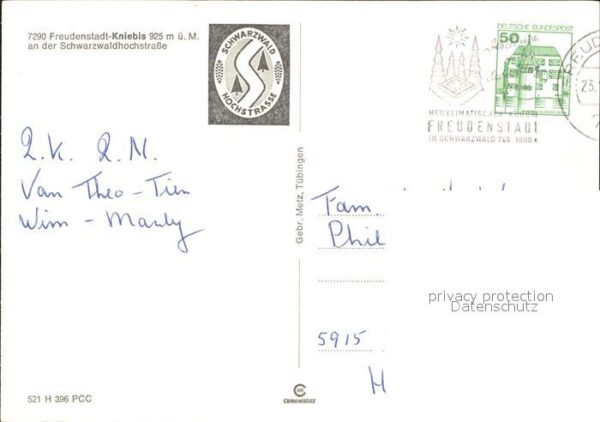 7290 Freudenstadt-Kniebis 925 m ü. M.
an der Schwarzwaldhochstraße
SCHWARZWALD
HOCHSTRASSE
DEUTSCHE BUNDESPOST
50
23.
HEILKLIMATISCHER KURORT
FREUDENSTADT
IM SCHWARZWALD 740 1000 m
L.K. L.M.
Van Theo - Tien
Wim - Manly
Gebr. Metz, Tübingen
Fam.
Phil
5915
H
privacy protection
Datenschutz
521 H 396 PCC